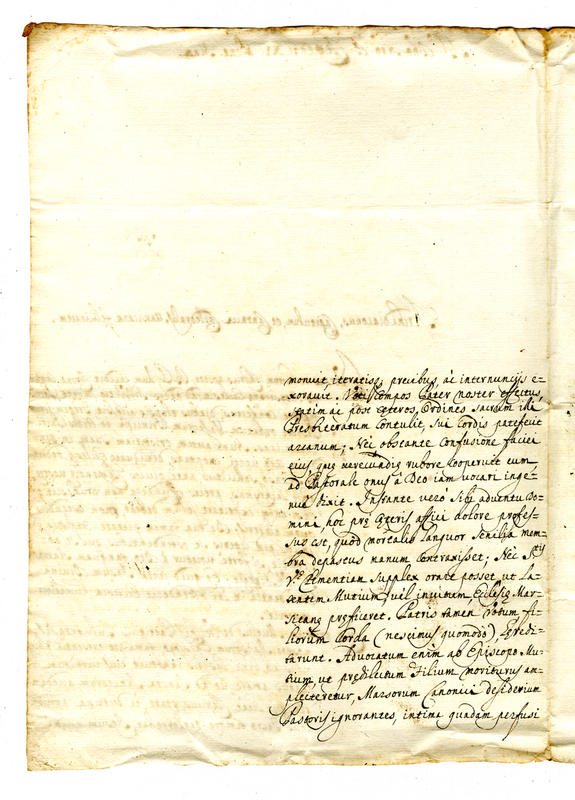 monuit, iteratisq; precibus, ac internuncijs e-
xoravit. Voti compos Pater noster effectus,
statim ac post cęteros Ordines Sacrum illi
Presbiteratum Contulit, sui Cordis patefecit
arcanum; Nec obstante Confusione faciei
eius, quę verecundię rubore cooperuit eum,
ad Pastorale onus à Deo iam vocari inge-
nuè dixit. Instante verò sibi adventu Do-
mini hoc prę cęteris affici dolore profes-
sus est, quod mortalis languor senilia mem-
bra depascens manum contraxisset; Nec S.tis
V.rę Clementiam supplex orare posset, ut
Mutium, vel invitum, Ecclesię Mar-
sicanę pręficeret. Patris tamen Votum fi-
liorum Corda (nescimus quomodo)
tarunt. Advocatum enim ab Episcopo Mu-
tium, ut prędilectum Filium moriturus am-
plecteretur, Marsorum Canonici desiderium
Pastoris ignorantes, intima quadam perfusi